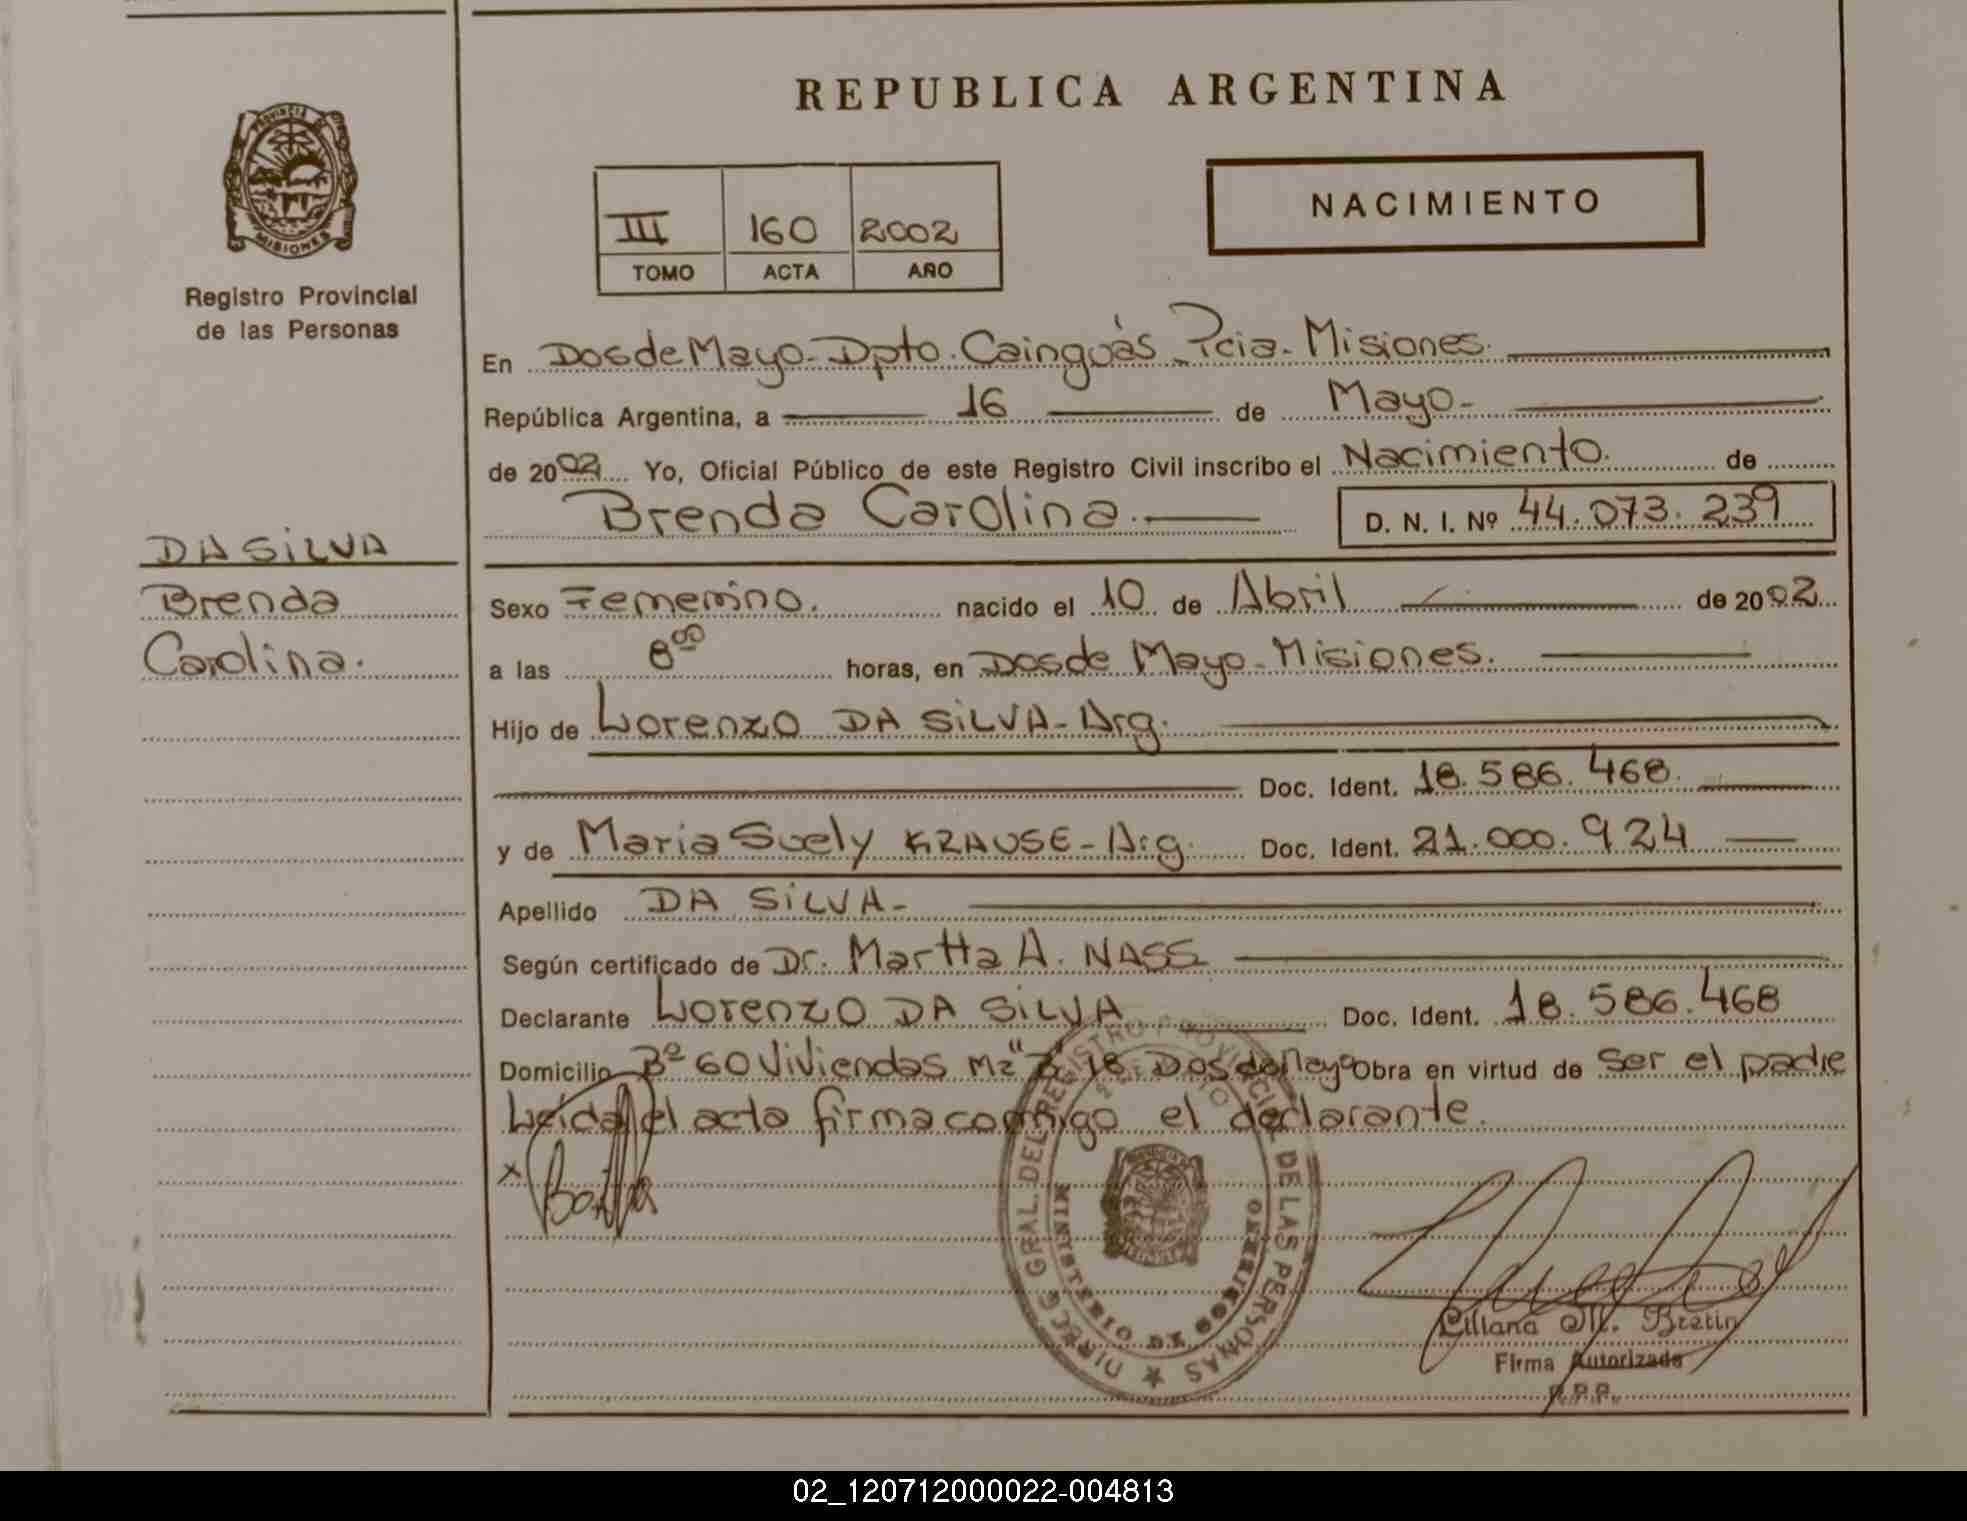 REPUBLICA ARGENTINA
PROVINCIA DE
MISIONES
Registro Provincial
de las Personas
III 160 2002
TOMO ACTA AÑO
NACIMIENTO
En Dos de Mayo - Dpto. Cainguás Pcia. Misiones.
República Argentina, a 16 de Mayo -
de 2002 Yo, Oficial Público de este Registro Civil inscribo el Nacimiento. de
Brenda Carolina. D. N. I. Nº 44.073.239
DA SILVA
Brenda
Carolina.
Sexo Femenino. nacido el 10 de Abril de 2002
a las 8 00 horas, en Dos de Mayo - Misiones.
Hijo de Lorenzo DA SILVA - Arg.
Doc. Ident. 18.586.468.
y de Maria Suely KRAUSE - Arg. Doc. Ident. 21.000.924
Apellido DA SILVA -
Según certificado de Dr. Martta A. NASS
Declarante Lorenzo DA SILVA Doc. Ident. 18.586.468
Domicilio Bº 60 Viviendas Mz 18 Dos de Mayo Obra en virtud de ser el padre
Leida el acta firma conmigo el declarante.
x
DIREC. GRAL. DEL REGISTRO PROVINCIAL DE LAS PERSONAS
MINISTERIO DE GOBIERNO
Liliana M. Bretin
Firma Autorizada
R.P.P.
02_120712000022-004813